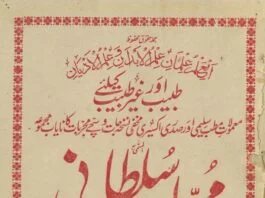 جملہ حقوق محفوظ
العلم علمان علم الابدان و علم الادیان
طبیب اور غیر طبیب کیلئے
معمولات مطب سلیمی اور صدری اکسیری مخفی نسخہ جات و سچے مجربات کا نایاب مجموعہ
سلطانی